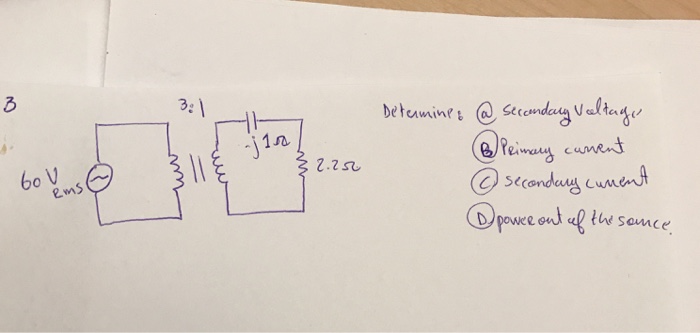 3
3:1
-j1Ω
2.2Ω
60 V
Rms
Determine: (a) secondary Voltage
(B) Primary current
(C) secondary current
(D) power out of the source.